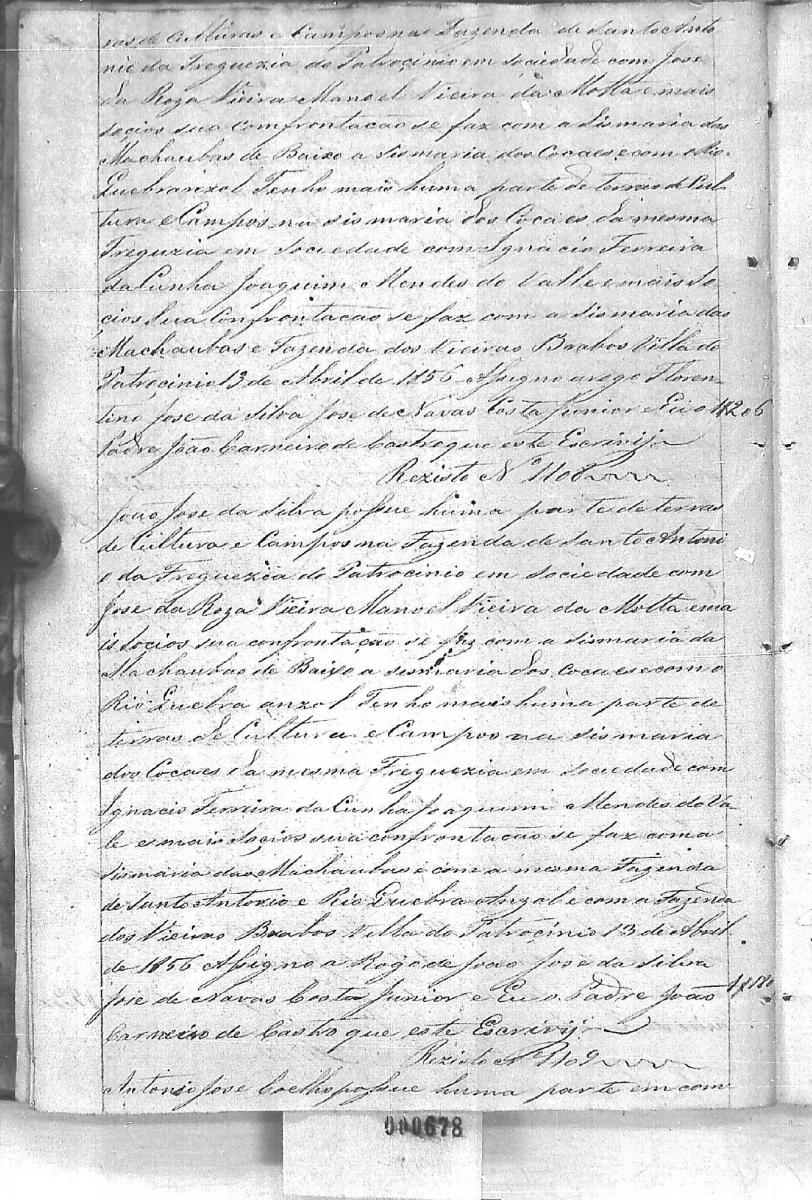 ras de Culturas e Campos na Fazenda de Santo Anto
nio da Freguezia do Patrocinio em Sociedade com Jose
da Roza Vieira Manoel Vieira da Motta e mais
socios sua comfrontacão se faz com a Sismaria das
Machaubas de Baixo a sismaria dos Cocaes, e com o Rio
Quebranzol Tenho mais huma parte de terras de Cul-
tura e Campos na sismaria dos Cocaes da mesma
Freguzia em Sociedade com Ignacio Ferreira
da Cunha Joaquim Mendes do Valle e mais So-
cios Sua Confrontacão se faz com a sismaria das
Machaubas e Fazenda dos Vieiras Brabos Villa do
Patrocinio 13 de Abril de 1856 Assigno a rogo Floren-
tino Jose da Silva Jose de Navas Costa Junior e Eu o 4206
Padre João Carneiro de Castro que este Escrivij
Rezisto Nº 1108
João Jose da Silva possue huma parte de terras
de Cultura e Campos na Fazenda de Santo Antoni
o da Freguezia do Patrocinio em Sociedade com
Jose da Roza Vieira Manoel Vieira da Motta e ma
is Socios sua confrontacão se faz com a sismaria da
Machaubas de Baixo a sismaria dos Cocaes e com o
Rio Quebra anzol Tenho mais huma parte de
terras de Cultura e Campos na sismaria
dos Cocaes da mesma Freguezia em Sociedade com
Ignacio Ferreira da Cunha Joaquim Mendes do Va
le e mais Socios sua confrontacão se faz com a
sismaria das Machaubas e com a mesma Fazenda
de Santo Antonio e Rio Quebra Anzol e com a Fazenda
dos Vieiras Brabos Villa do Patrocinio 13 de Abril
de 1856 Assigno a Rogo de João Jose da Silva
Jose de Navas Costa Junior e Eu o Padre João
Carneiro de Castro que este Escrivij
Rezisto Nº 1109
Antonio Jose Coelho possue huma parte em com
000678